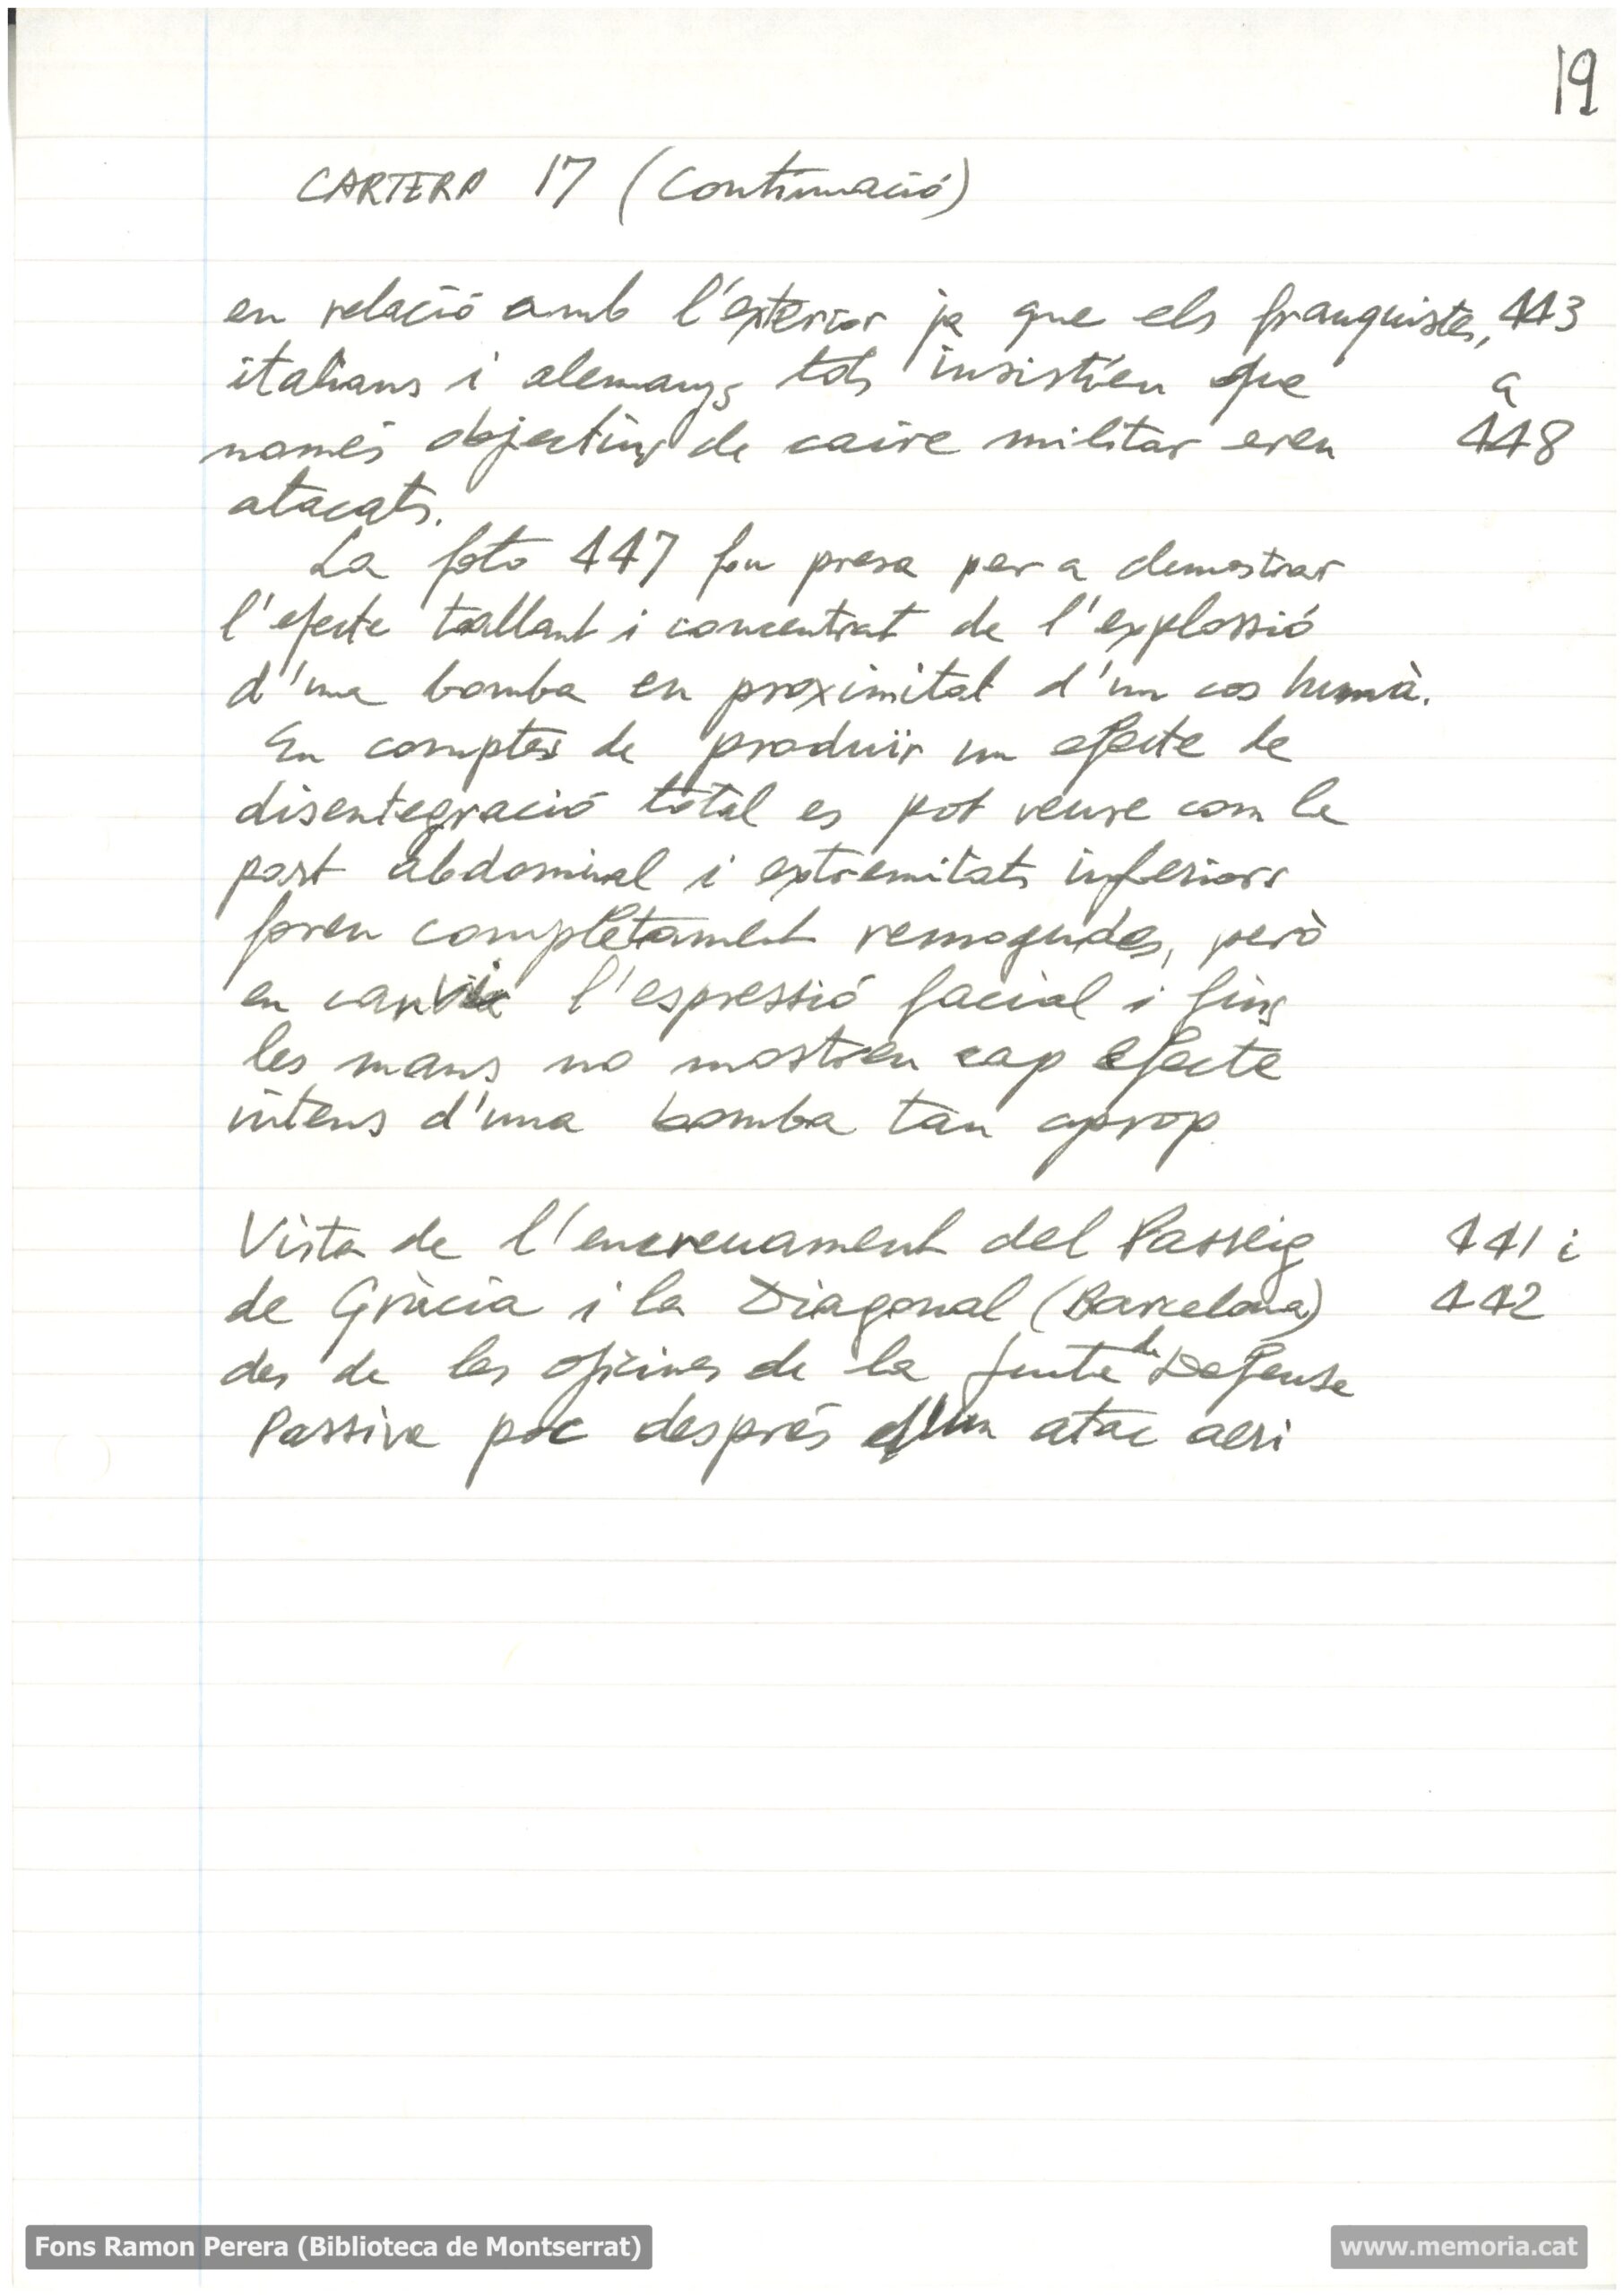 19
CARTERA 17 (Continuació)
en relació amb l'exterior ja que els franquistes, 443
italians i alemanys tots insistíen que a
només objectius de caire militar eren 448
atacats.
La foto 447 fou presa per a demostrar
l'efecte tallant i concentrat de l'explossió
d'una bomba en proximitat d'un cos humà.
En comptes de produïr un efecte de
disentegració total es pot veure com la
part abdominal i extremitats inferiors
foren completament remogudes, però
en canvi l'espressió facial i fins
les mans no mostren cap efecte
intens d'una bomba tan aprop.
Vista de l'encreuament del Passeig 441 i
de Gràcia i la Diagonal (Barcelona) 442
des de les oficines de la Junta de Defensa
Passiva poc després d'un atac aeri
Fons Ramon Perera (Biblioteca de Montserrat)
www.memoria.cat